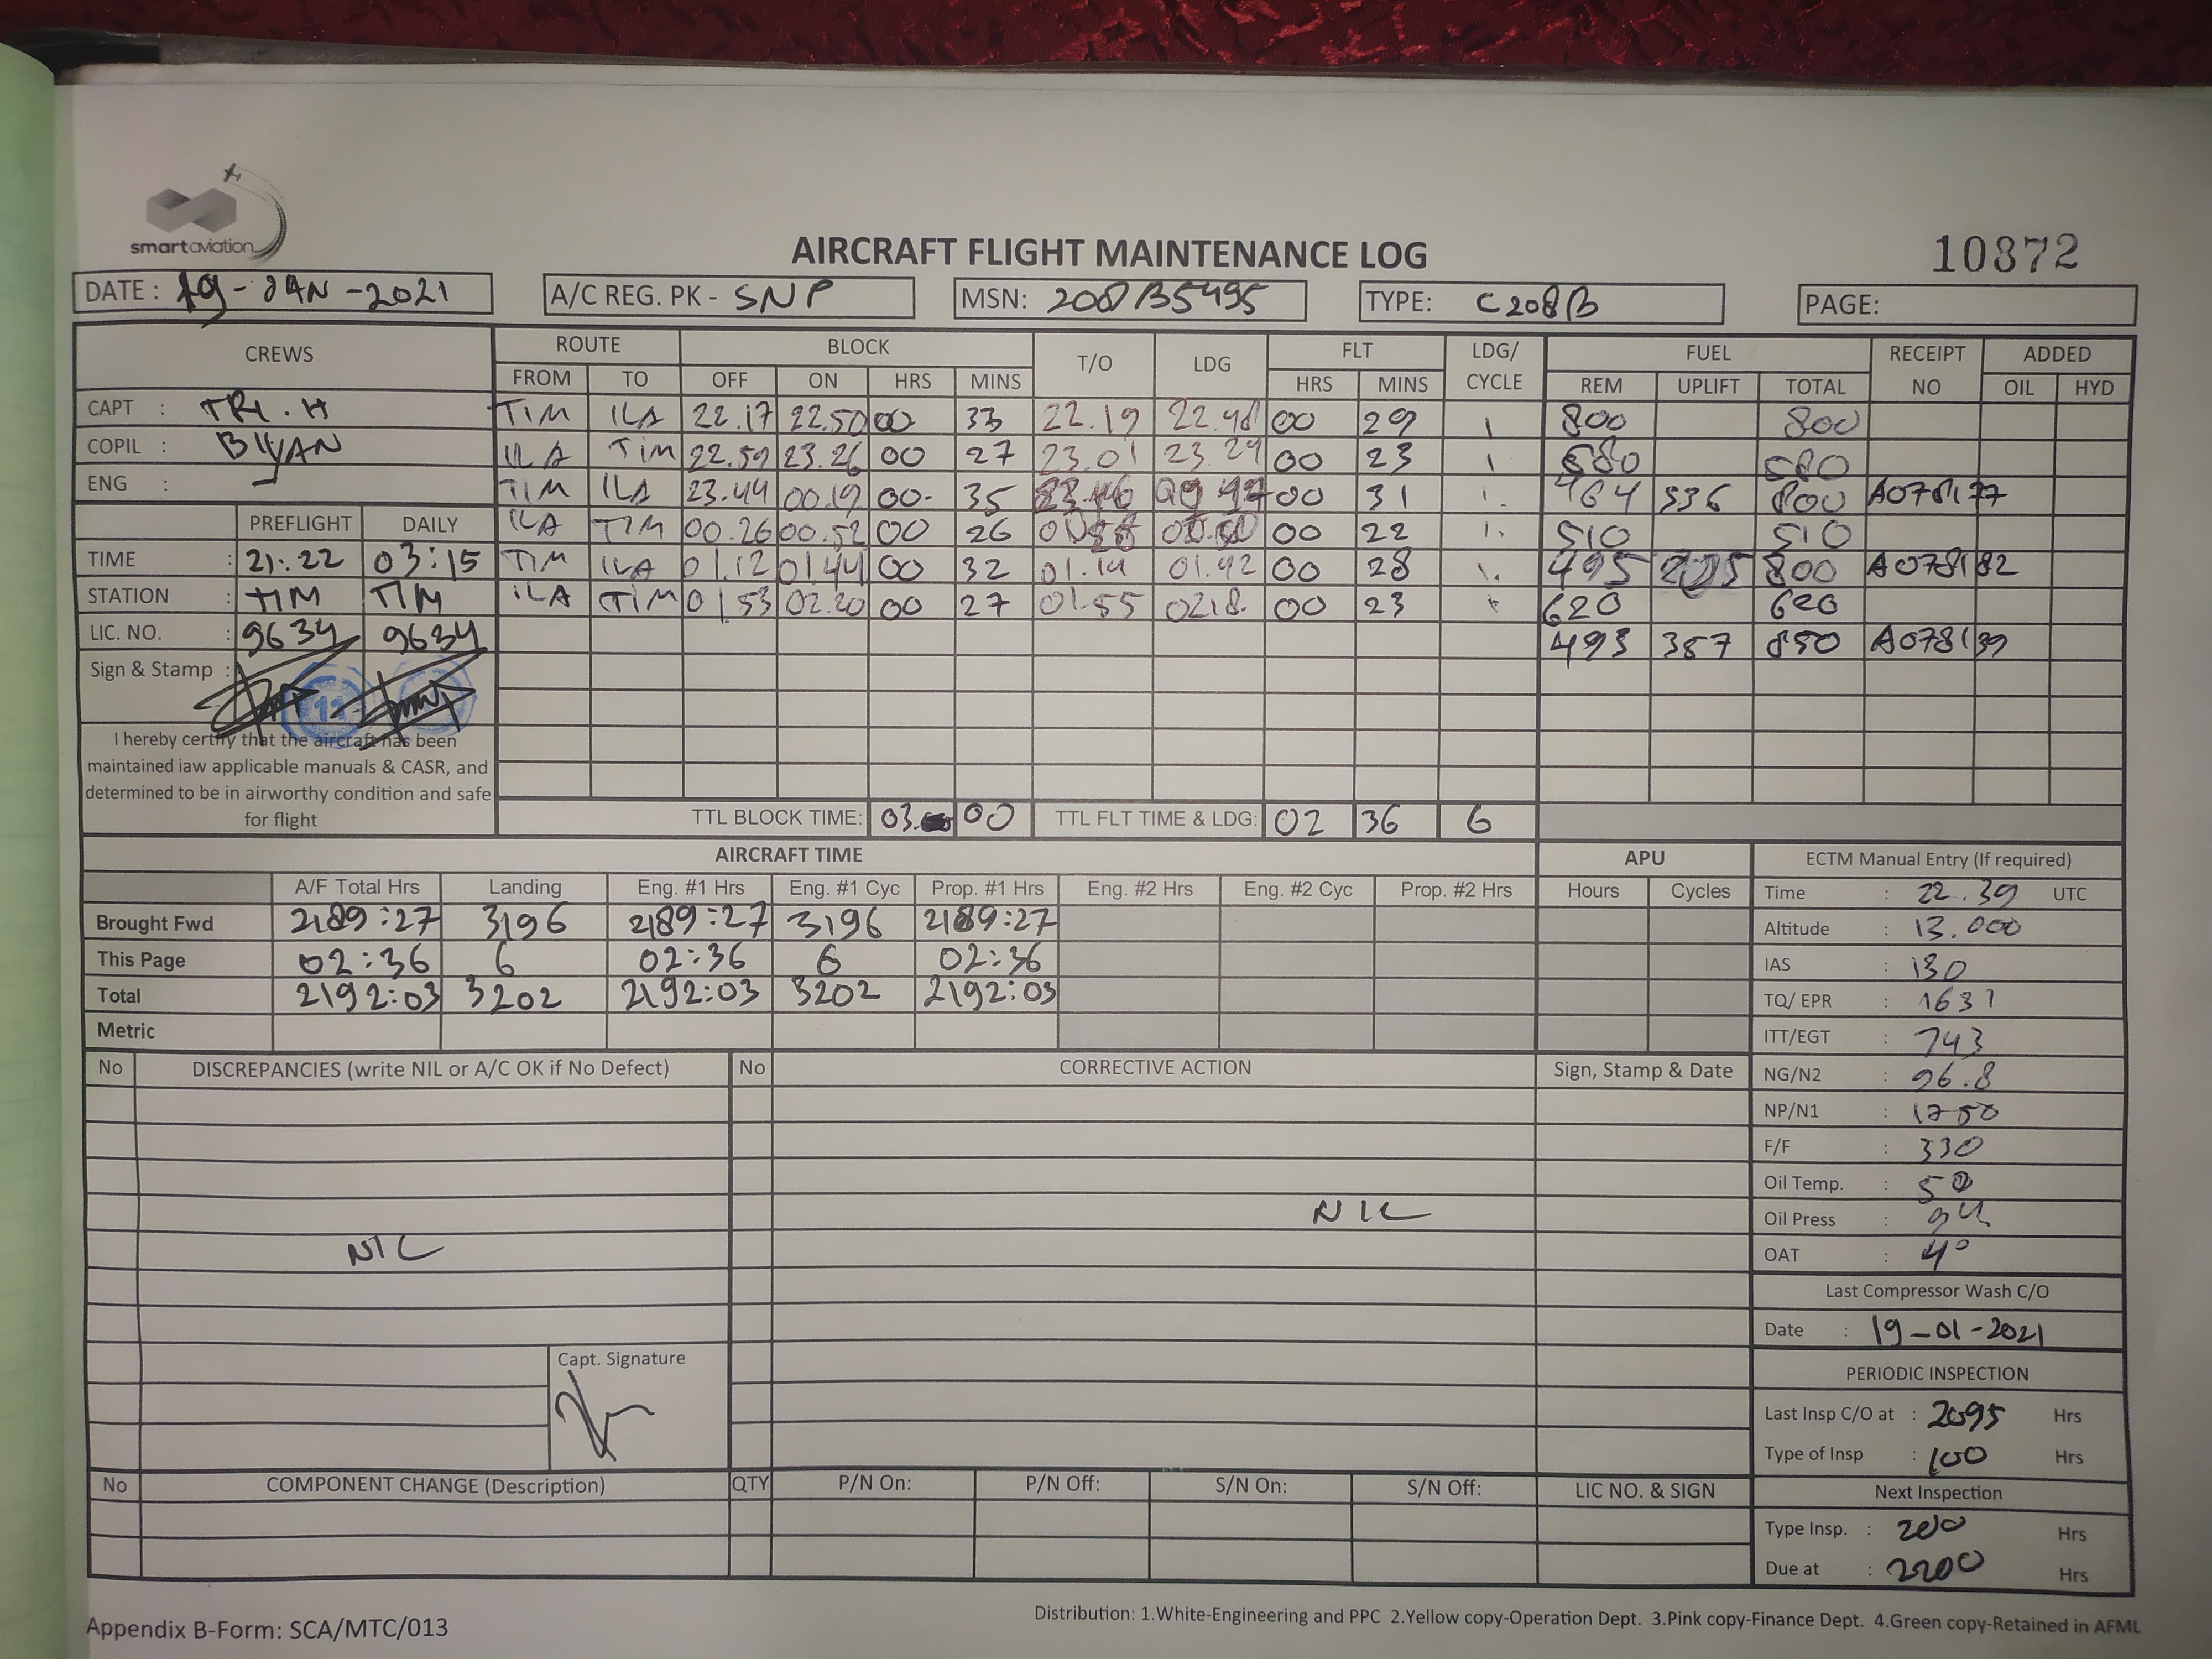 smartaviation
AIRCRAFT FLIGHT MAINTENANCE LOG
10372
DATE : 19-JAN-2021
A/C REG. PK - SNP
MSN: 208B5495
TYPE: C208B
PAGE:
CREWS ROUTE BLOCK T/O LDG FLT LDG/ CYCLE FUEL RECEIPT NO ADDED
FROM TO OFF ON HRS MINS HRS MINS REM UPLIFT TOTAL OIL HYD
CAPT : TRI.H
COPIL : BIYAN
ENG : -
TIM ILA 22.17 22.50 00 33 22.19 22.48 00 29 1 800 800
ILA TIM 22.59 23.26 00 27 23.01 23.24 00 23 1 580 580
TIM ILA 23.44 00.19 00- 35 00 31 1. 464 336 800 A078177
ILA TIM 00.26 00.52 00 26 00 22 1. 510 510
TIM ILA 01.12 01.44 00 32 01.14 01.42 00 28 1. 495 800 A078182
ILA TIM 01.53 02.20 00 27 01.55 0218. 00 23 620 620
493 357 850 A078139
PREFLIGHT DAILY
TIME : 21:22 03:15
STATION : TIM TIM
LIC. NO. : 9634 9634
Sign & Stamp :
11
I hereby certify that the aircraft has been
maintained iaw applicable manuals & CASR, and
determined to be in airworthy condition and safe
for flight
TTL BLOCK TIME: 03. 00 TTL FLT TIME & LDG: 02 36 6
AIRCRAFT TIME
A/F Total Hrs Landing Eng. #1 Hrs Eng. #1 Cyc Prop. #1 Hrs Eng. #2 Hrs Eng. #2 Cyc Prop. #2 Hrs
Brought Fwd 2189:27 3196 2189:27 3196 2189:27
This Page 02:36 6 02:36 6 02:36
Total 2192:03 3202 2192:03 3202 2192:03
Metric
APU
Hours Cycles
ECTM Manual Entry (If required)
Time : 22.39 UTC
Altitude : 13.000
IAS : 130
TQ/ EPR : 1631
ITT/EGT : 743
NG/N2 : 96.8
NP/N1 : 1750
F/F : 330
Oil Temp. : 50
Oil Press : 94
OAT : 4°
No DISCREPANCIES (write NIL or A/C OK if No Defect)
NIL
Capt. Signature
No CORRECTIVE ACTION Sign, Stamp & Date
NIL
Last Compressor Wash C/O
Date : 19-01-2021
PERIODIC INSPECTION
Last Insp C/O at : 2095 Hrs
Type of Insp : 100 Hrs
Next Inspection
Type Insp. : 200 Hrs
Due at : 2200 Hrs
No COMPONENT CHANGE (Description) QTY P/N On: P/N Off: S/N On: S/N Off: LIC NO. & SIGN
Appendix B-Form: SCA/MTC/013
Distribution: 1.White-Engineering and PPC 2.Yellow copy-Operation Dept. 3.Pink copy-Finance Dept. 4.Green copy-Retained in AFML